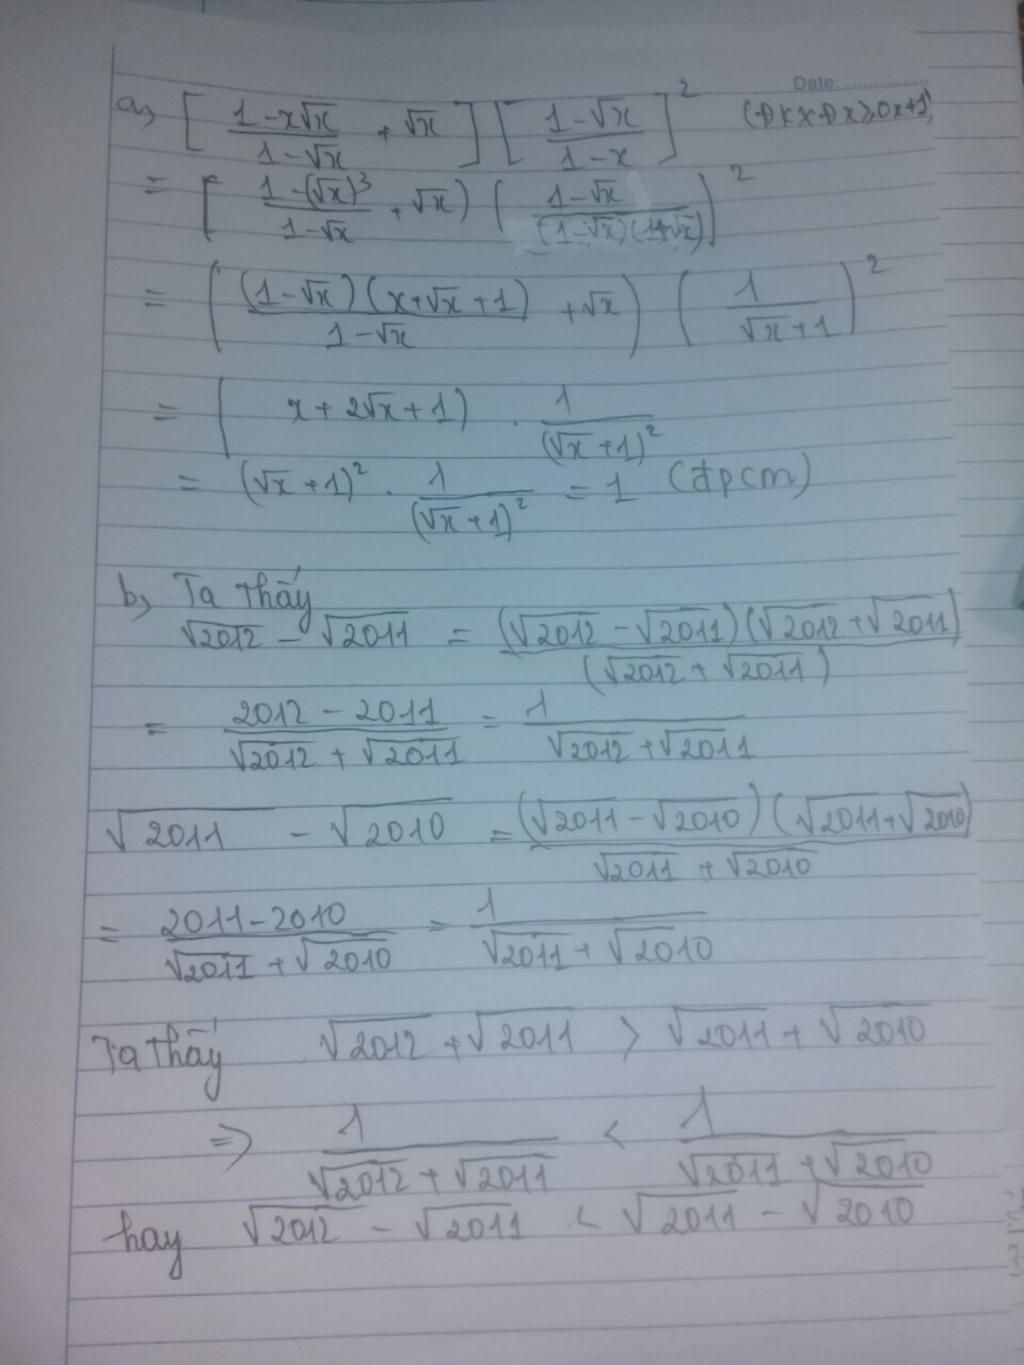 Date: ..............
a, [ (1-x√x)/(1-√x) + √x ] [ (1-√x)/(1-x) ]² (ĐKXĐ x≥0 x≠1)
= [ (1-(√x)³)/(1-√x) + √x ) ( (1-√x)/((1-√x)(1+√x)) ]²
= ( ((1-√x)(x+√x+1))/(1-√x) + √x ) ( 1/(√x+1) )²
= ( x+2√x+1 ) . 1/(√x+1)²
= (√x+1)² . 1/(√x+1)² = 1 (đpcm)
b, Ta thấy
√2012 - √2011 = ((√2012 - √2011)(√2012 + √2011))/((√2012 + √2011))
= (2012 - 2011)/(√2012 + √2011) = 1/(√2012 + √2011)
√2011 - √2010 = ((√2011 - √2010)(√2011 + √2010))/(√2011 + √2010)
= (2011 - 2010)/(√2011 + √2010) = 1/(√2011 + √2010)
Ta thấy √2012 + √2011 > √2011 + √2010
=> 1/(√2012 + √2011) < 1/(√2011 + √2010)
hay √2012 - √2011 < √2011 - √2010